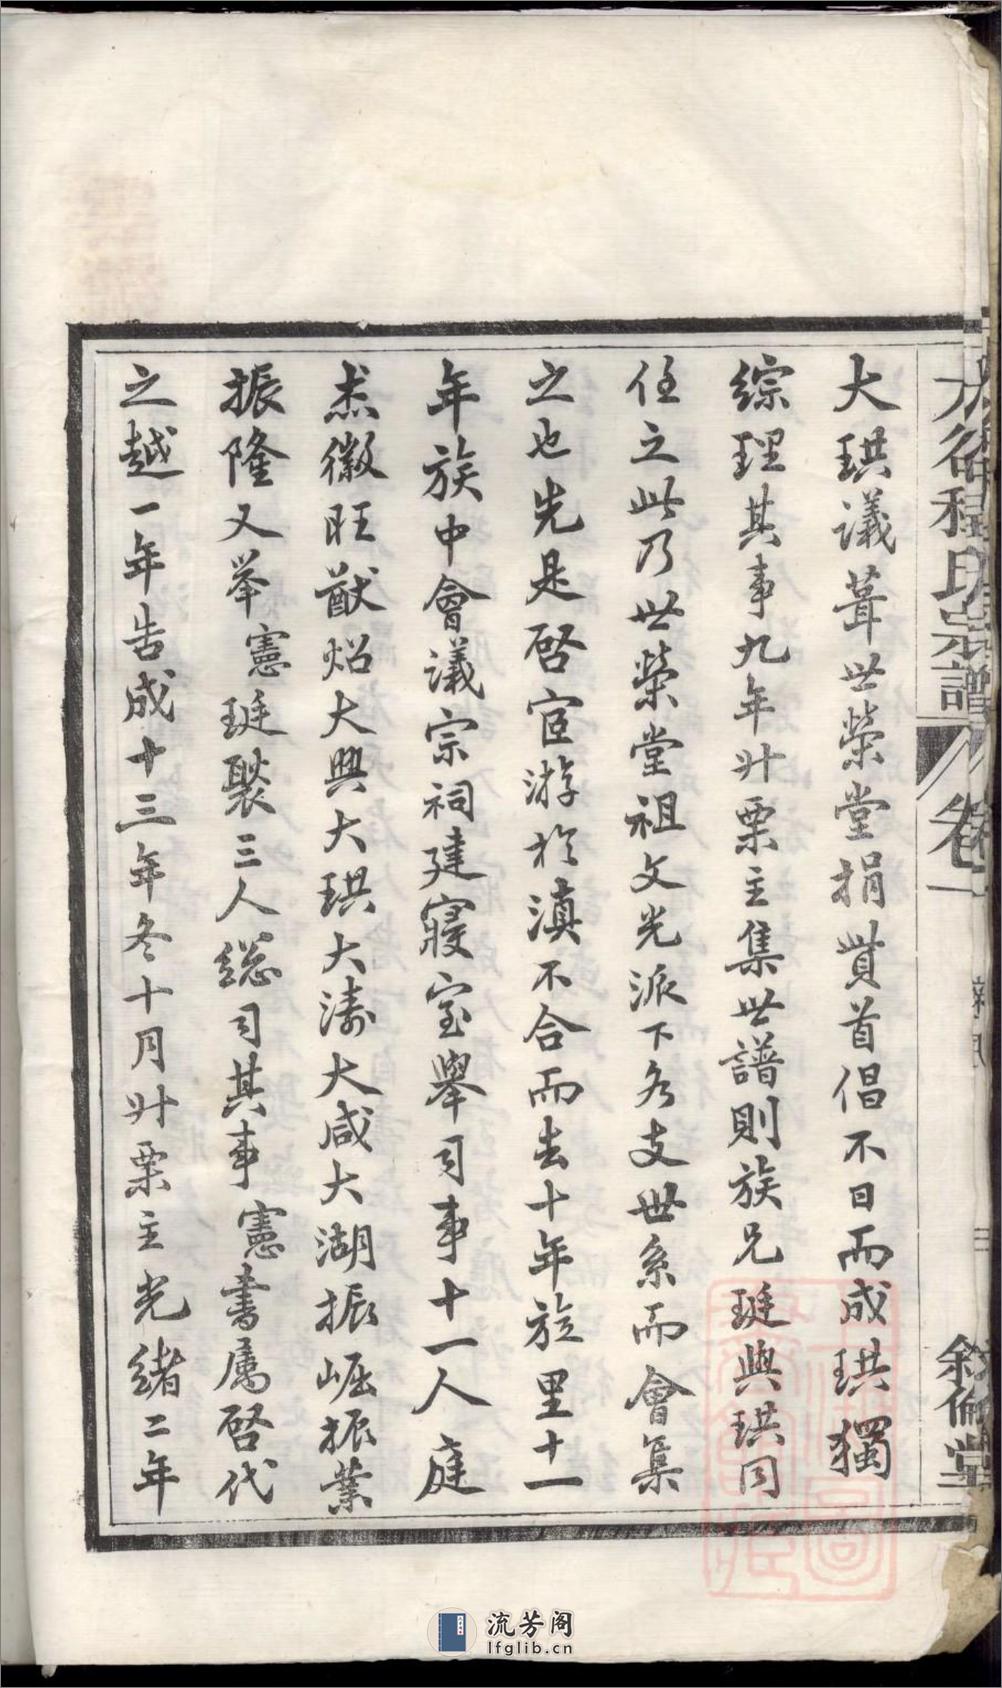 大珙議葺世榮堂捐貲首倡不日而成珙獨
綜理其事九年廾栗主集世譜則族兄珽與珙同
任之此乃世榮堂祖文光派下各支世系而會集
之也先是啓宦游於滇不合而去十年旋里十一
年族中會議宗祠建寢室舉司事十一人庭
杰徽旺猷炤大興大珙大濤大咸大湖振崛振業
振隆又举憲珽聚三人總司其事憲書属啓代
之越一年告成十三年冬十月廾栗主光緒二年
程氏宗譜
卷一
敘倫堂
流芳阁
lfglib.cn